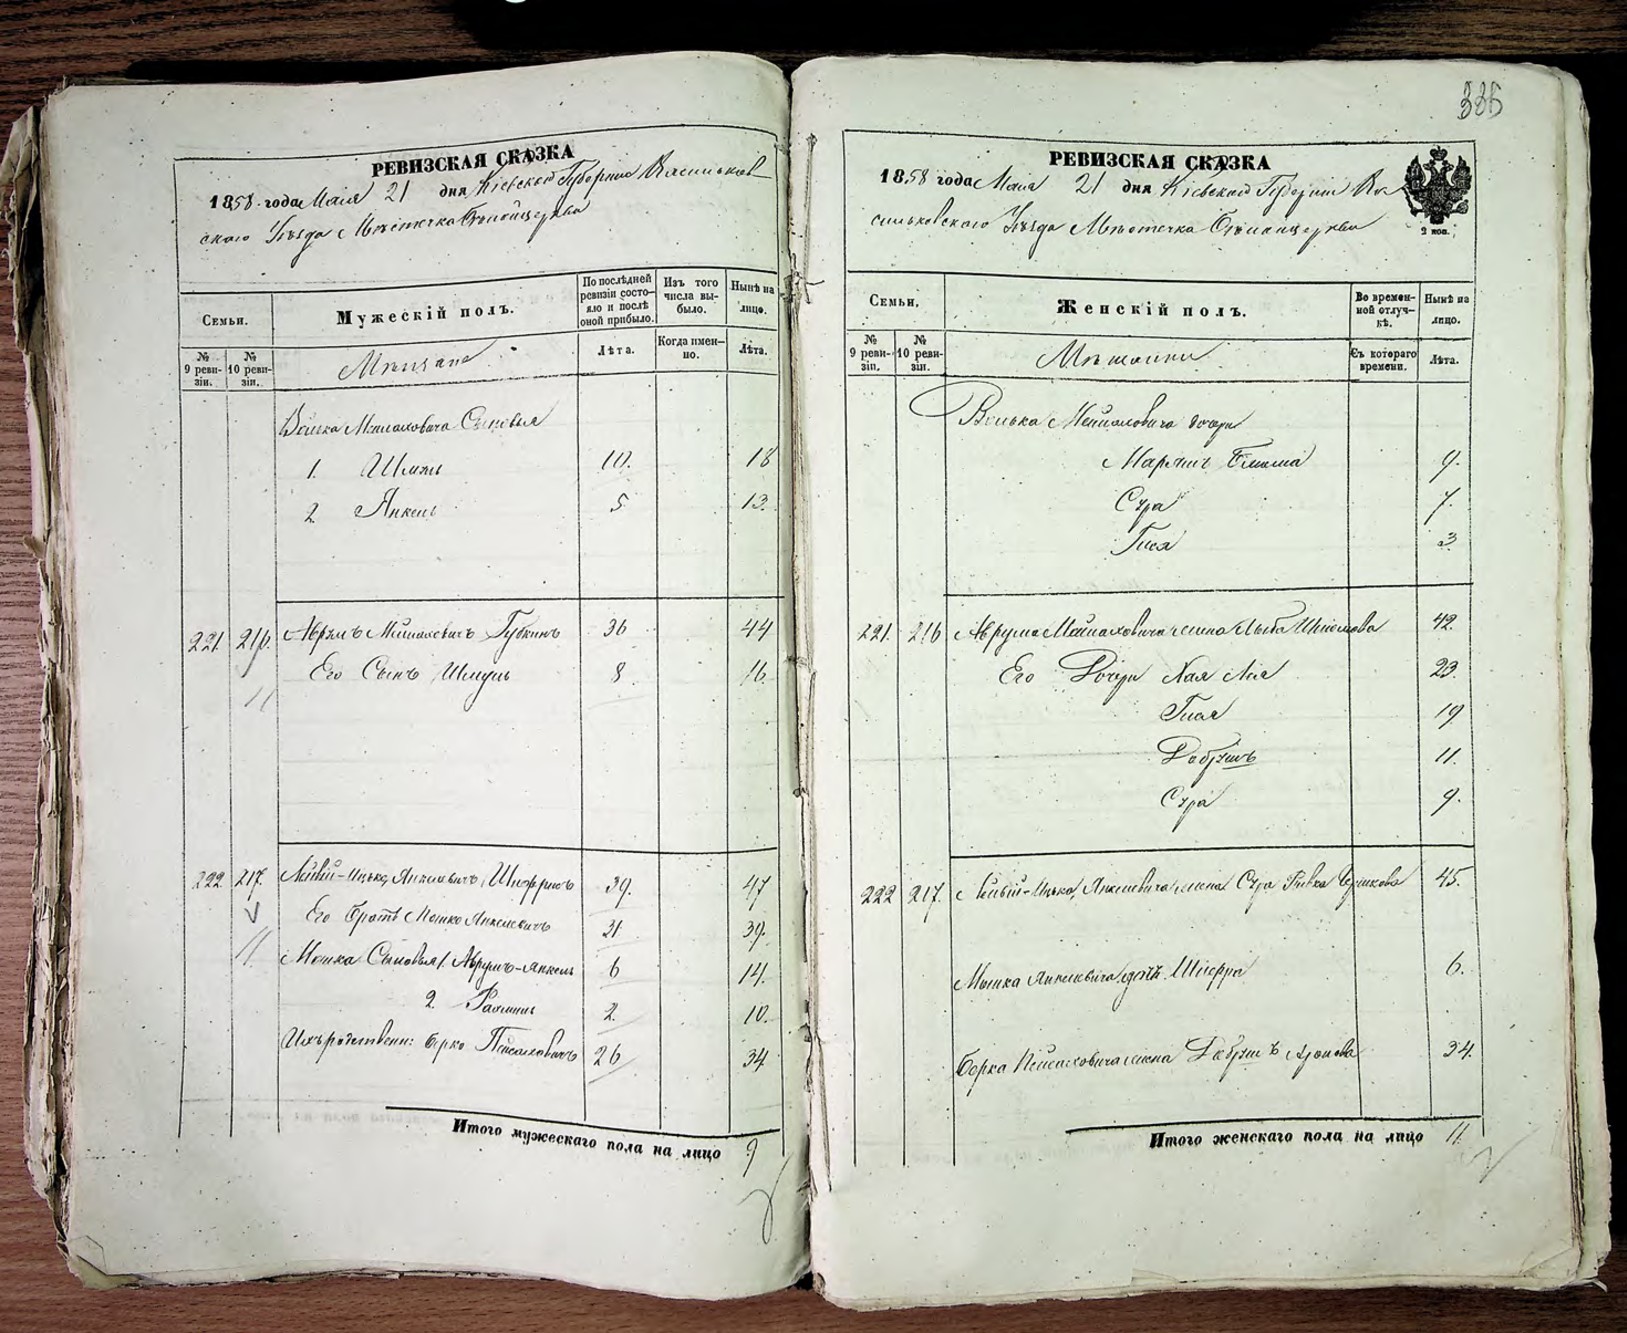 335
РЕВИЗСКАЯ СКАЗКА
1858 года Маія 21 дня Кіевской Губерніи Васильков
скаго Уѣзда Мѣстечка Бѣлойцеркви
Семьи.
№ 9 ревизіи.
№ 10 ревизіи.
Мужескій полъ.
По послѣдней ревизіи состояло и послѣ оной прибыло.
Изъ того числа выбыло.
Нынѣ на лицо.
Мѣщане
Лѣта.
Когда именно.
Лѣта.
Волька Сыновья
1. 10. 18
2. Янкель 5 13.
221 216. Аврумъ Губкинъ 36 44
Его Сынъ Шмуль 8 16.
222 217. Янкелевичъ 39. 47
Его Братъ Мошко Янкелевичъ 31 39.
Мошка Сыновья 1. Аврумъ-Янкель 6 14.
2. Рахмиль 2. 10.
Ихъ родствени: Берко Пейсаховичъ 26 34
Итого мужескаго пола на лицо 9
РЕВИЗСКАЯ СКАЗКА
1858 года Маія 21 дня Кіевской Губерніи Ва
сильковскаго Уѣзда Мѣстечка Бѣлойцеркви
2 коп.
Семьи.
№ 9 ревизіи.
№ 10 ревизіи.
Женскій полъ.
Во временной отлучкѣ.
Нынѣ на лицо.
Мѣщанки
Съ котораго времени.
Лѣта.
Волька дочери
9.
Сура 7.
Гися 3
221. 216 Аврума жена 42.
Его Дочери Хая Лия 23.
Гися 19
Добрышъ 11.
Сура 9.
222 217. Янкелевича жена Сура Ривка 45.
Мошка Янкелевича дочь Шифра 6.
Берка Пейсаховича жена Добрышъ Аронова 34.
Итого женскаго пола на лицо 11.